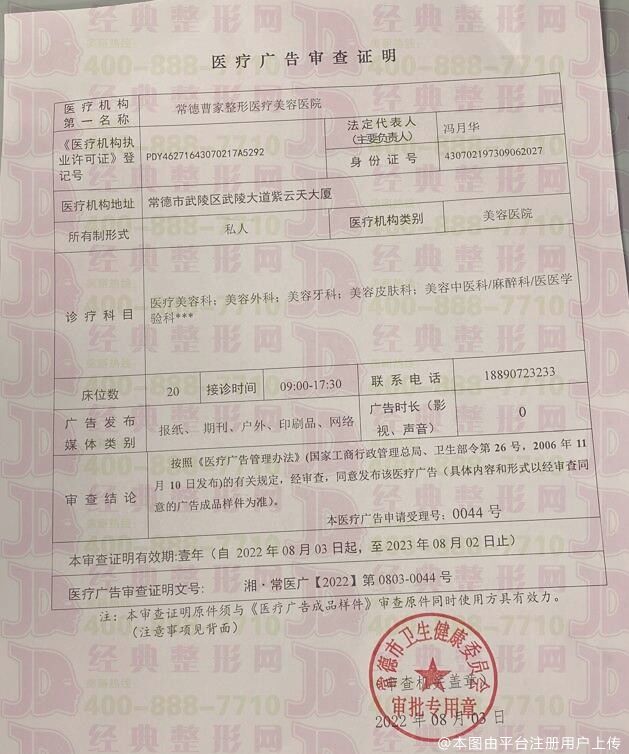 医疗广告审查证明
医疗机构第一名称 常德曹家整形医疗美容医院 法定代表人(主要负责人) 冯月华
《医疗机构执业许可证》登记号 PDY46271643070217A5292 身份证号 430702197309062027
医疗机构地址 常德市武陵区武陵大道紫云天大厦
所有制形式 私人 医疗机构类别 美容医院
诊疗科目 医疗美容科；美容外科；美容牙科；美容皮肤科；美容中医科/麻醉科/医医学
验科***
床位数 20 接诊时间 09:00-17:30 联系电话 18890723233
广告发布媒体类别 报纸、期刊、户外、印刷品、网络 广告时长（影视、声音） 0
审查结论 按照《医疗广告管理办法》(国家工商行政管理总局、卫生部令第26号，2006年11
月10日发布)的有关规定，经审查，同意发布该医疗广告（具体内容和形式以经审查同
意的广告成品样件为准）。
本医疗广告申请受理号：0044号
本审查证明有效期:壹年（自2022年08月03日起，至2023年08月02日止）
医疗广告审查证明文号： 湘·常医广【2022】第0803-0044号
注：本审查证明原件须与《医疗广告成品样件》审查原件同时使用方具有效力。
（注意事项见背面）
常德市卫生健康委员会
（审查机关盖章）
审批专用章
2022年08月03日
经典整形网
400-888-7710
@本图由平台注册用户上传